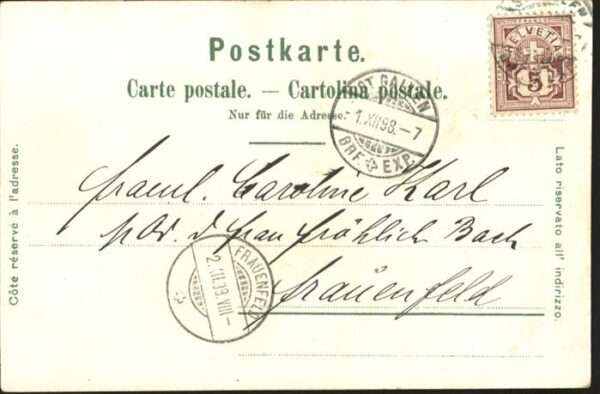 Postkarte.
Carte postale. — Cartolina postale.
Nur für die Adresse.
HELVETIA
5
ST GALLEN
1.XII.98.–7
BRF. EXP.
Côte réservé à l'adresse.
Lato riservato all' indirizzo.
Fräul. Caroline Karl
p. Adr. d. Frau Fröhlich Bach
Frauenfeld
FRAUENFELD
2.XII.98.VIII–